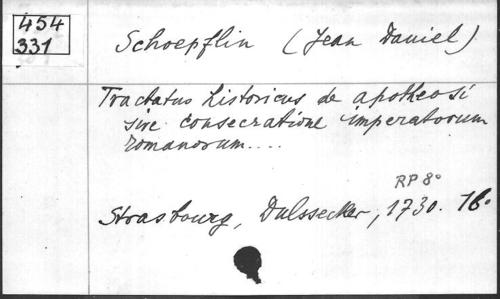 454
331
Schoepflin (Jean Daniel)
Tractatus historicus de apotheosi
sive consecratione imperatorum
romanorum....
RP 8°
Strasbourg, Dulssecker, 1730. 16°